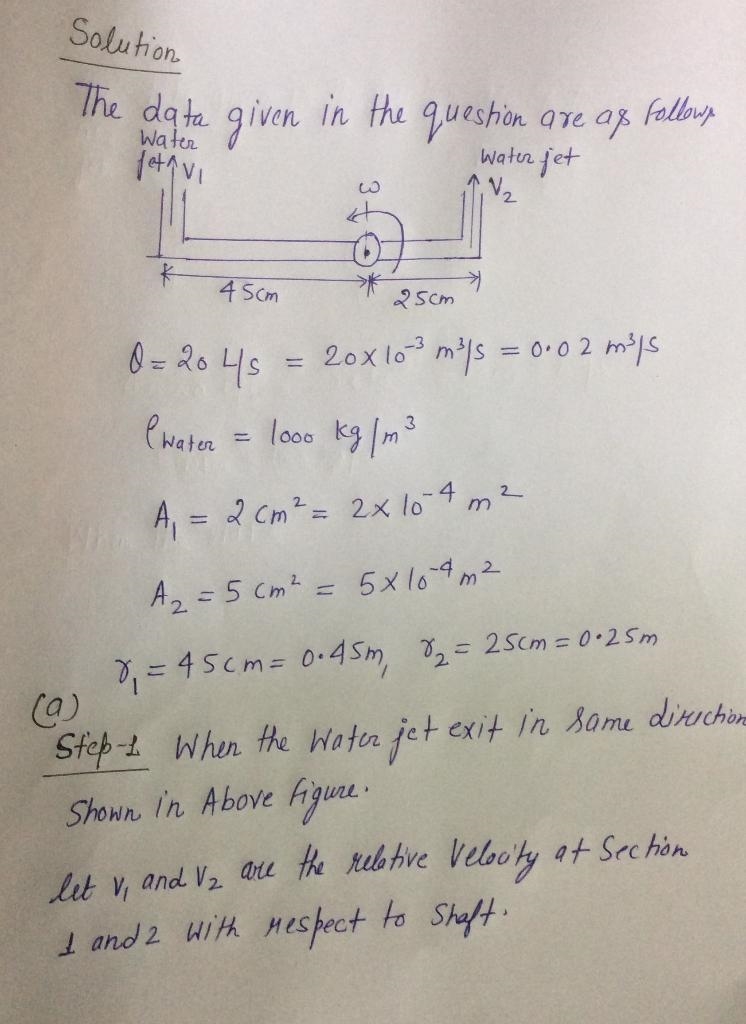 Solution
The data given in the question are as follows
Water jet V1
Water jet V2
ω
45cm
25cm
Q = 20 L/s = 20×10⁻³ m³/s = 0.02 m³/s
ρwater = 1000 kg/m³
A₁ = 2 cm² = 2×10⁻⁴ m²
A₂ = 5 cm² = 5×10⁻⁴ m²
r₁ = 45cm = 0.45m, r₂ = 25cm = 0.25m
(a)
Step-1 When the Water jet exit in same direction
Shown in Above figure.
let V₁ and V₂ are the relative Velocity at Section
1 and 2 With respect to Shaft.